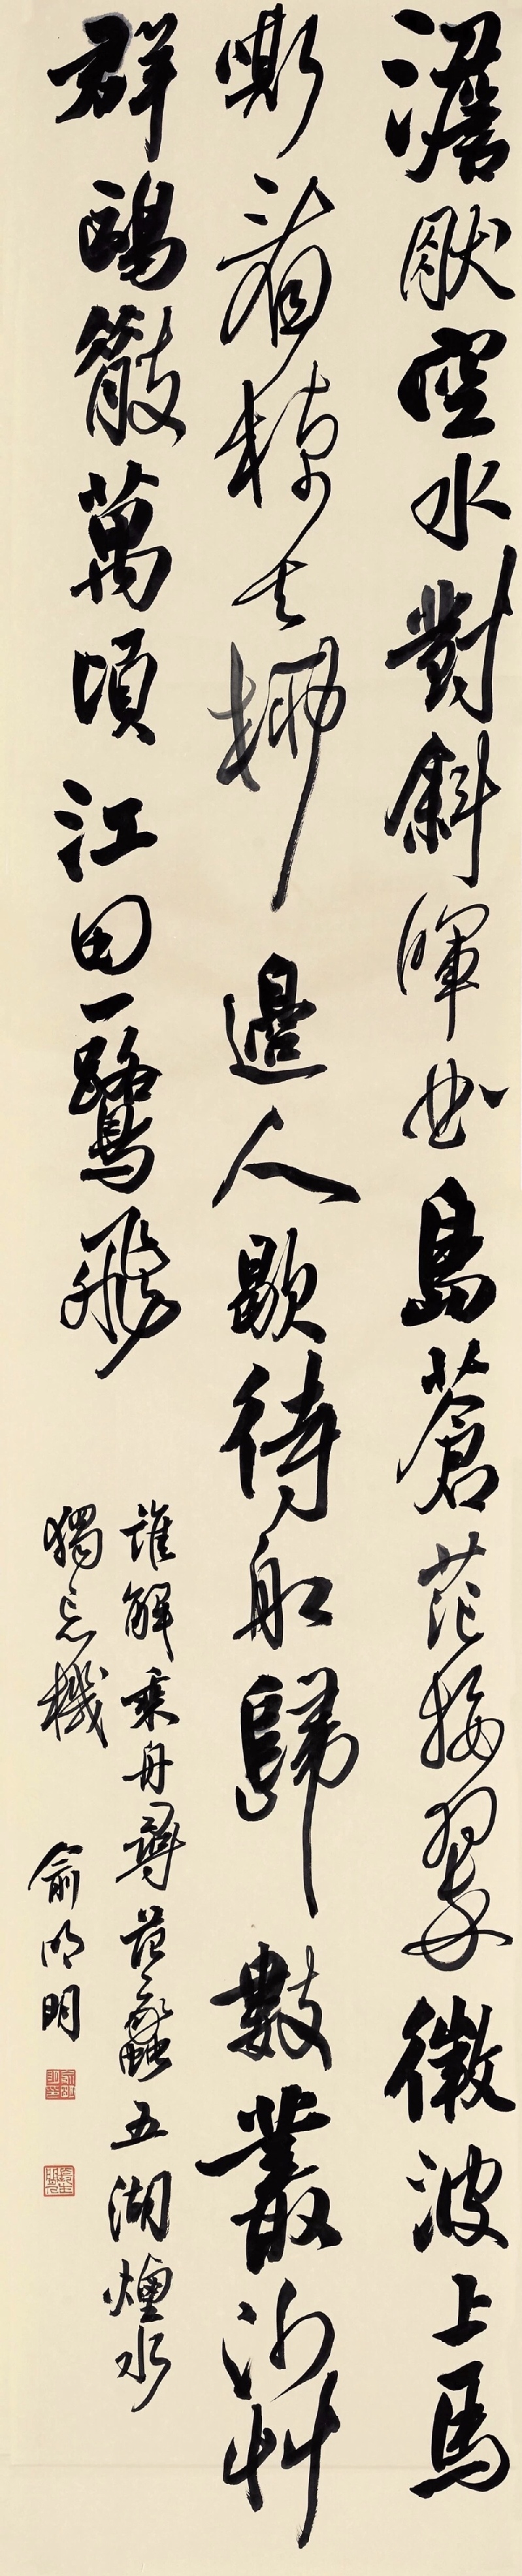 澹肰空水對斜暉曲島蒼茫接翠微波上馬
嘶看棹去柳邊人歇待船歸數叢沙艸
群鷗散萬頃江田一鷺飛
誰解乘舟尋范蠡五湖煙水
獨忘機
俞明明